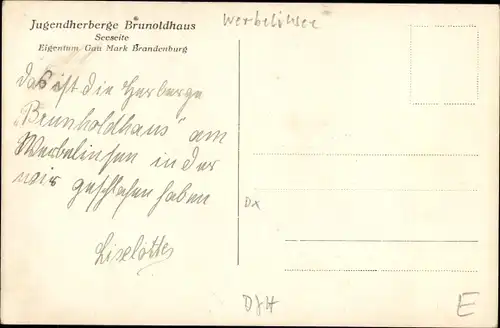 Jugendherberge Brunoldhaus
Seeseite
Eigentum Gau Mark Brandenburg
Werbelinsee
das ist die Herberge
„Brunholdhaus" am
Werbelinsen in der
wir geschlafen haben
Liselotte
DX
DJH
E